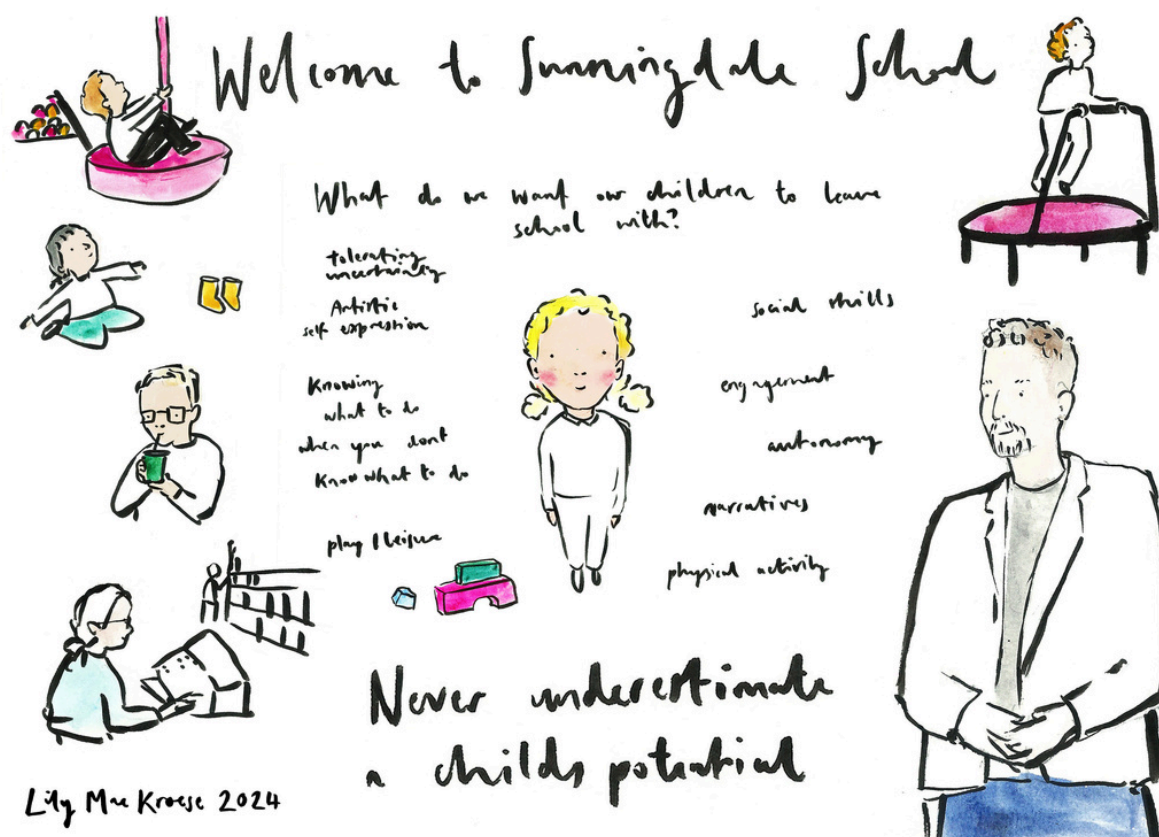 Welcome to Sunningdale School
What do we want our children to leave
school with?
tolerating
uncertainty
Artistic
self expression
Knowing
what to do
when you dont
know what to do
play / leisure
social skills
engagement
autonomy
narratives
physical activity
Never underestimate
a childs potential
Lily Mae Kroese 2024